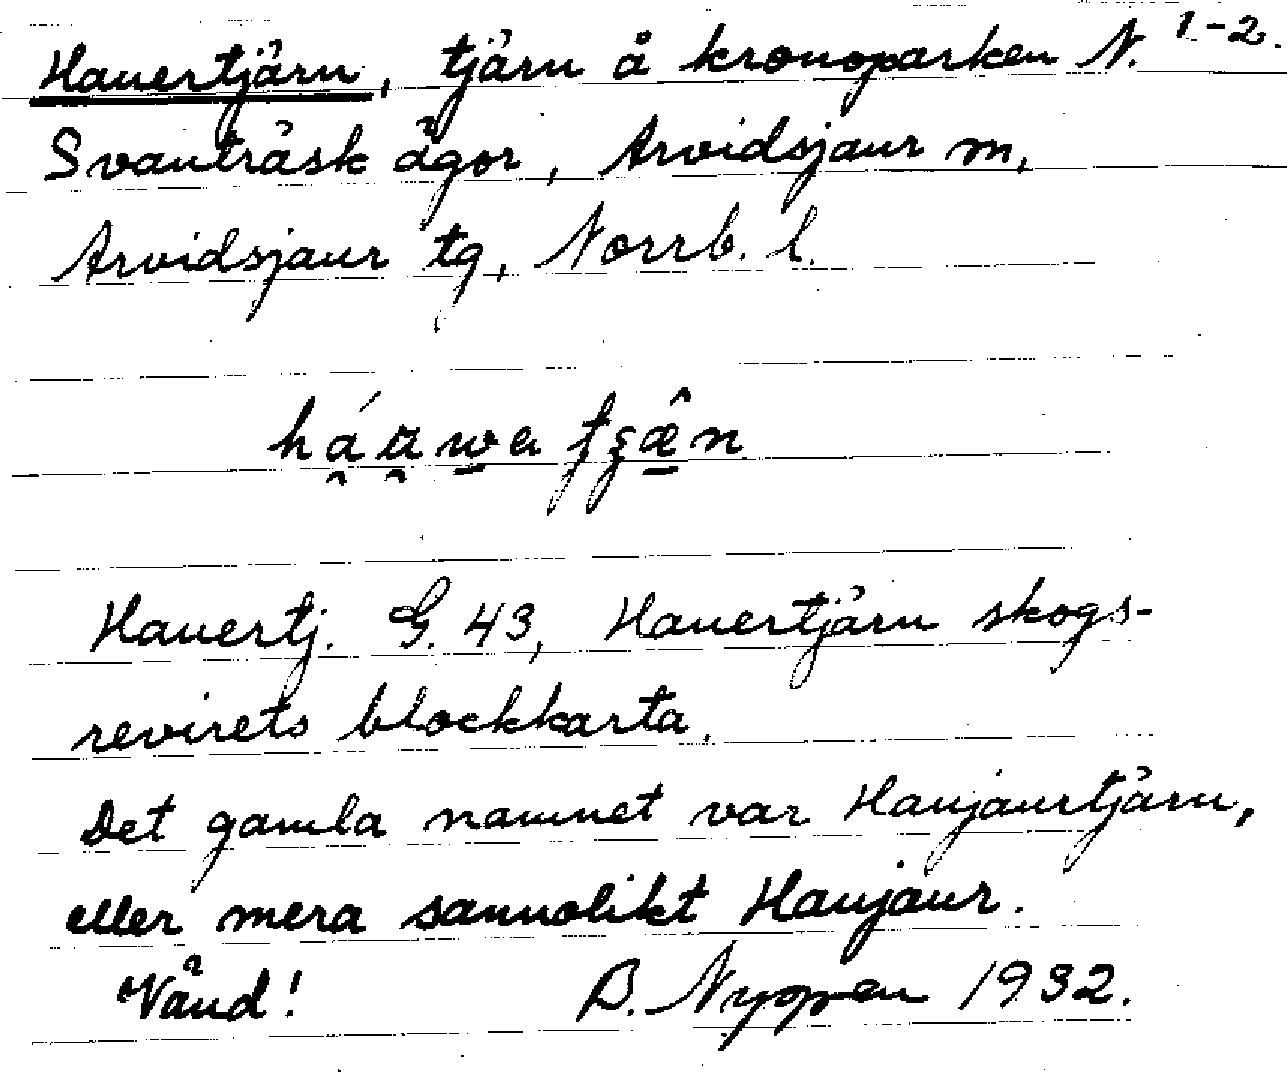 Hauertjärn, tjärn å kronoparken N. 1-2.
Svanträsk ägor, Arvidsjaur m,
Arvidsjaur tg, Norrb. l.
Hauertj. G. 43, Hauertjärn skogs-
revirets blockkarta.
Det gamla namnet var Haujaurtjärn,
eller mera sannolikt Haujaur.
Vänd! B. Nyppen 1932.